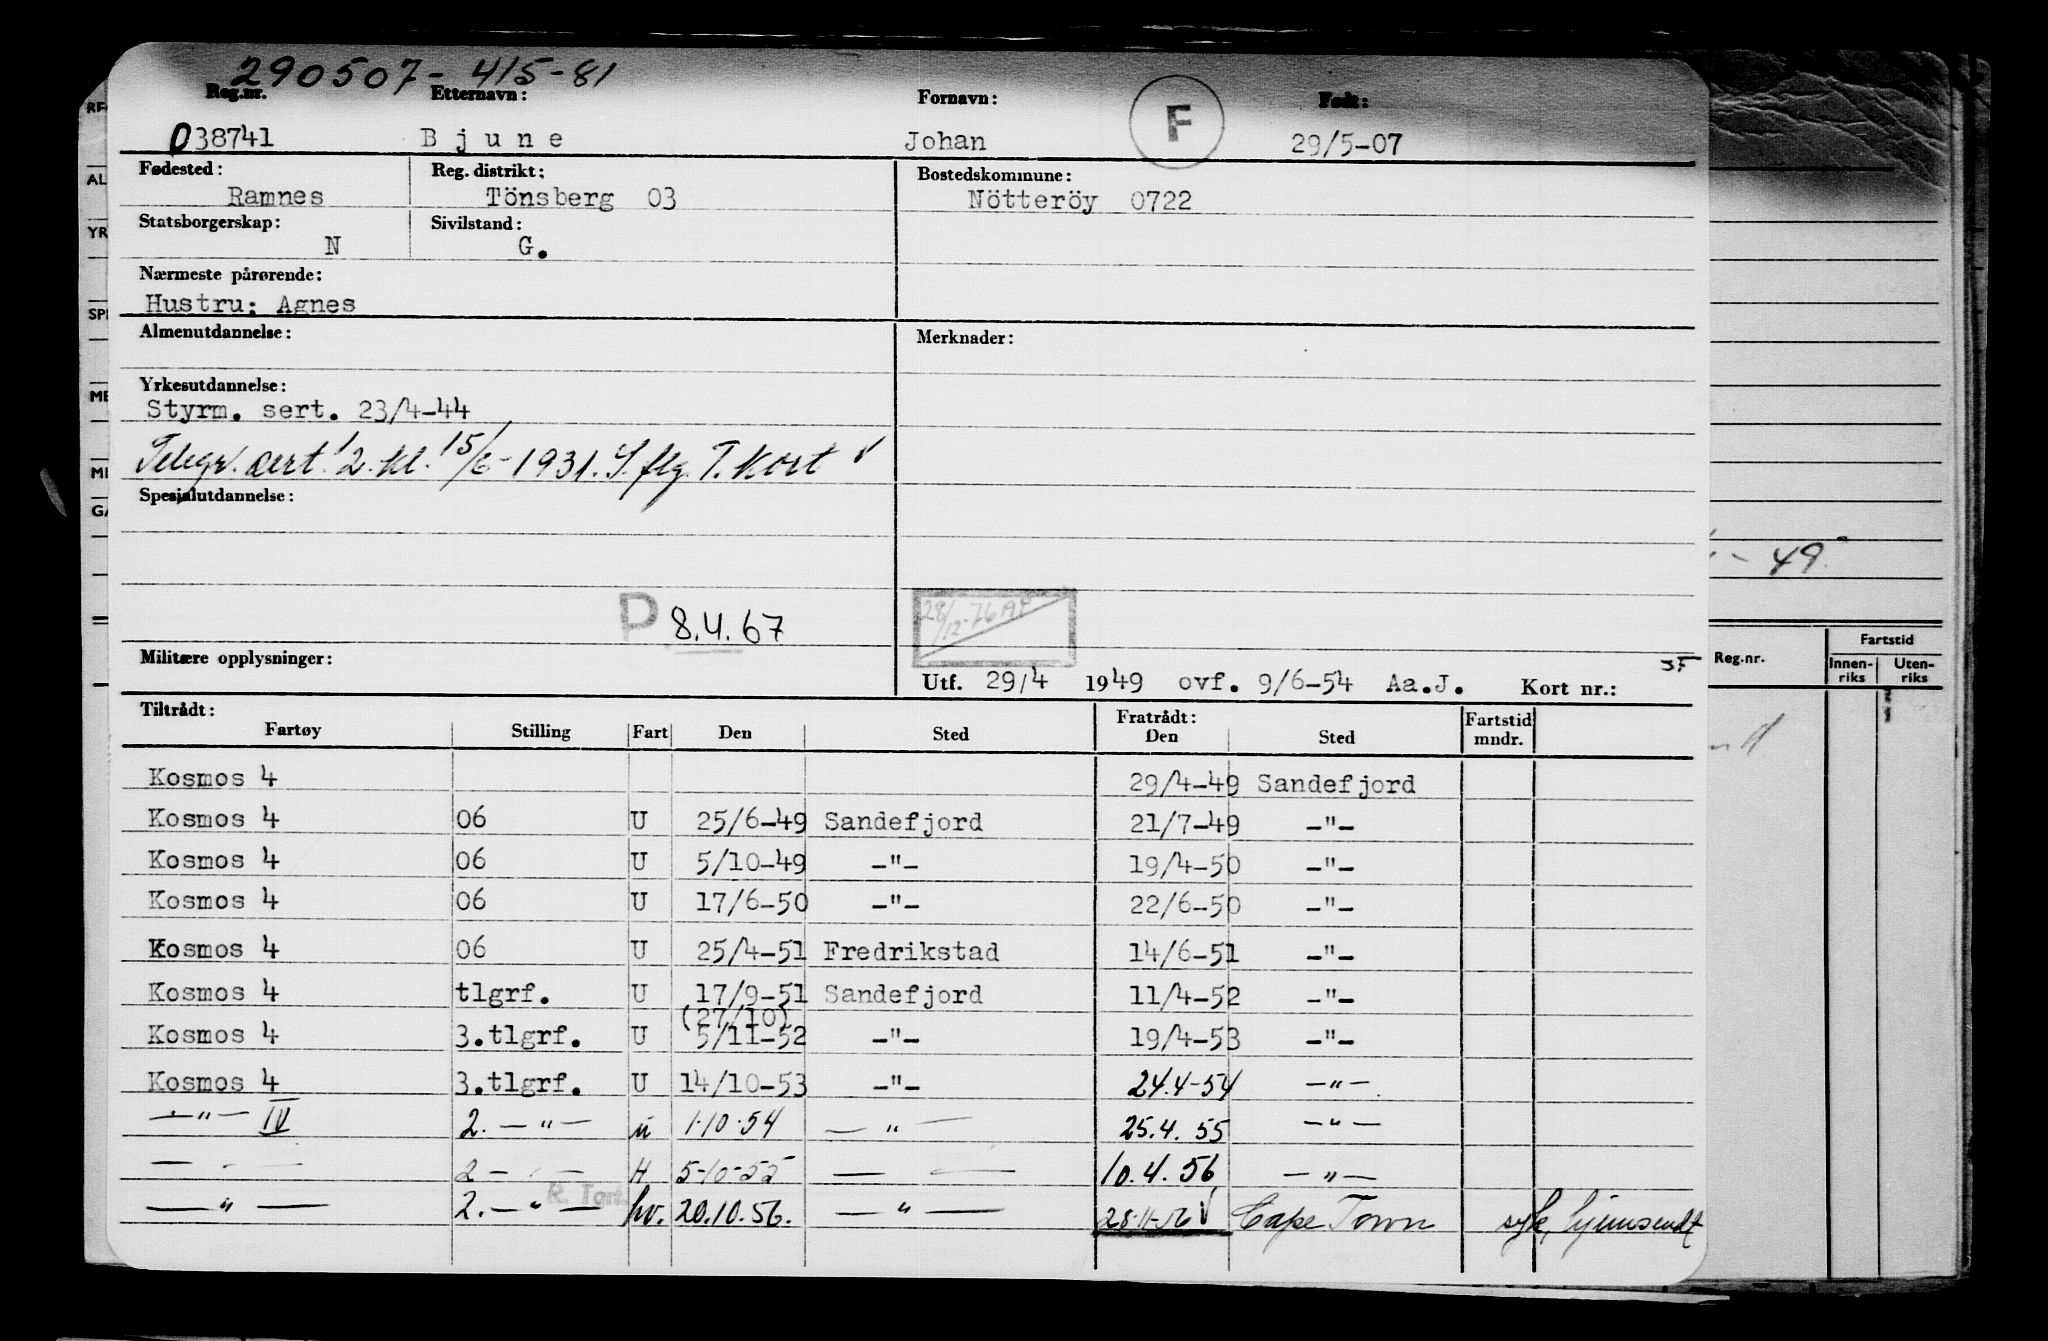 290507-415-81
Reg.nr. Etternavn: Fornavn: F Født:
038741 Bjune Johan 29/5-07
Fødested: Reg. distrikt: Bostedskommune:
Ramnes Tönsberg 03 Nötteröy 0722
Statsborgerskap: Sivilstand:
N G.
Nærmeste pårørende:
Hustru: Agnes
Almenutdannelse: Merknader:
Yrkesutdannelse:
Styrm. sert. 23/4-44
Telegr. cert. 2. kl. 15/6-1931. S. flg. T. Kort √
Spesialutdannelse:
- 49.
P 8.4.67 28/12-76
Militære opplysninger:
Utf. 29/4 1949 ovf. 9/6-54 Aa.J. Kort nr.:
Reg.nr. Fartstid
Innen-riks Uten-riks
Tiltrådt: Fratrådt: Fartstid
Fartøy Stilling Fart Den Sted Den Sted mndr.
Kosmos 4 29/4-49 Sandefjord
Kosmos 4 06 U 25/6-49 Sandefjord 21/7-49 -"-
Kosmos 4 06 U 5/10-49 -"- 19/4-50 -"-
Kosmos 4 06 U 17/6-50 -"- 22/6-50 -"-
Kosmos 4 06 U 25/4-51 Fredrikstad 14/6-51 -"-
Kosmos 4 tlgrf. U 17/9-51 Sandefjord 11/4-52 -"-
(27/10)
Kosmos 4 3.tlgrf. U 5/11-52 -"- 19/4-53 -"-
Kosmos 4 3.tlgrf. U 14/10-53 -"- 24.4-54 -"-
-"- IV 2. -"- u 1.10.54 -"- 25.4.55 -"-
2 - H 5-10-55 10.4.56 -"-
-"- 2. -"- hv. 20.10.56. -"- 28-11-56 √ Cape Town syk, hjemsendt